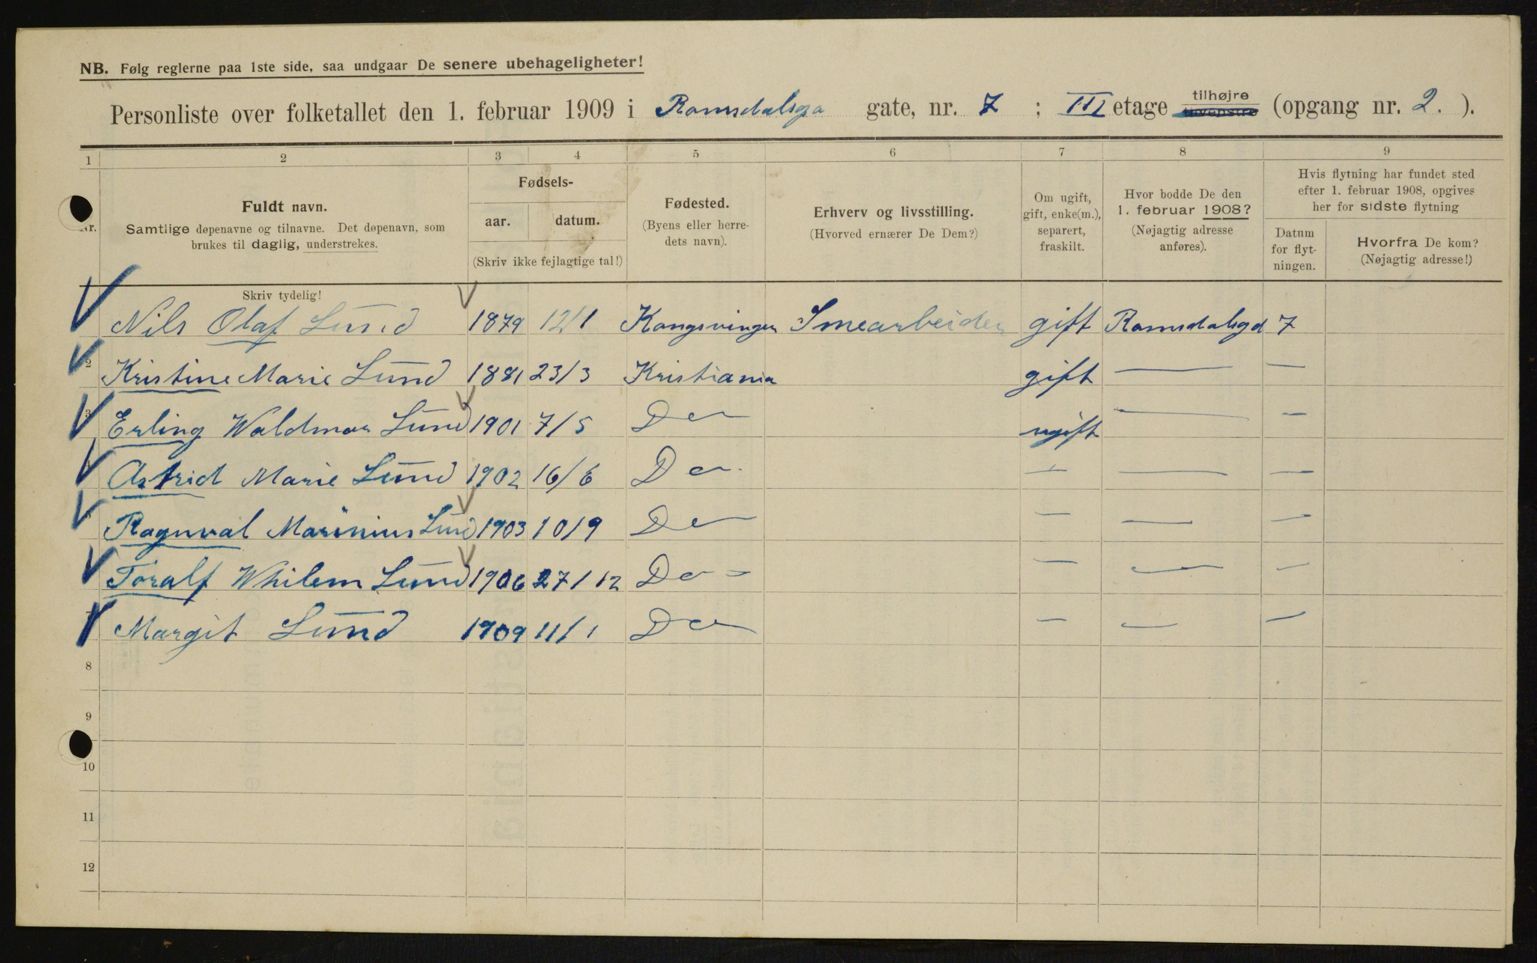 NB. Følg reglerne paa 1ste side, saa undgaar De senere ubehageligheter!
Personliste over folketallet den 1. februar 1909 i Romsdalsga gate, nr. 7 ; III etage tilhøjre (opgang nr. 2. ).
1 2 3 4 5 6 7 8 9
Nr. Fuldt navn.
Samtlige døpenavne og tilnavne. Det døpenavn, som
brukes til daglig, understrekes.
Skriv tydelig!
Fødsels-
aar. datum.
(Skriv ikke fejlagtige tal!)
Fødested.
(Byens eller herre-
dets navn).
Erhverv og livsstilling.
(Hvorved ernærer De Dem?)
Om ugift,
gift, enke(m.),
separert,
fraskilt.
Hvor bodde De den
1. februar 1908?
(Nøjagtig adresse
anføres).
Hvis flytning har fundet sted
efter 1. februar 1908, opgives
her for sidste flytning
Datum
for flyt-
ningen.
Hvorfra De kom?
(Nøjagtig adresse!)
Nils Olaf Lund 1879 12/1 Kongsvinger Smearbeider gift Romsdalsgd 7
2 Kristine Marie Lund 1881 23/3 Kristiania gift — —
3 Erling Waldmar Lund 1901 7/5 Do ugift — —
Astrid Marie Lund 1902 16/6 Do — — —
5 Ragnval Marinius Lund 1903 10/9 Do — — —
Toralf Whilem Lund 1906 27/12 Do — — —
Margit Lund 1909 11/1 Do — — —
8
9
10
11
12